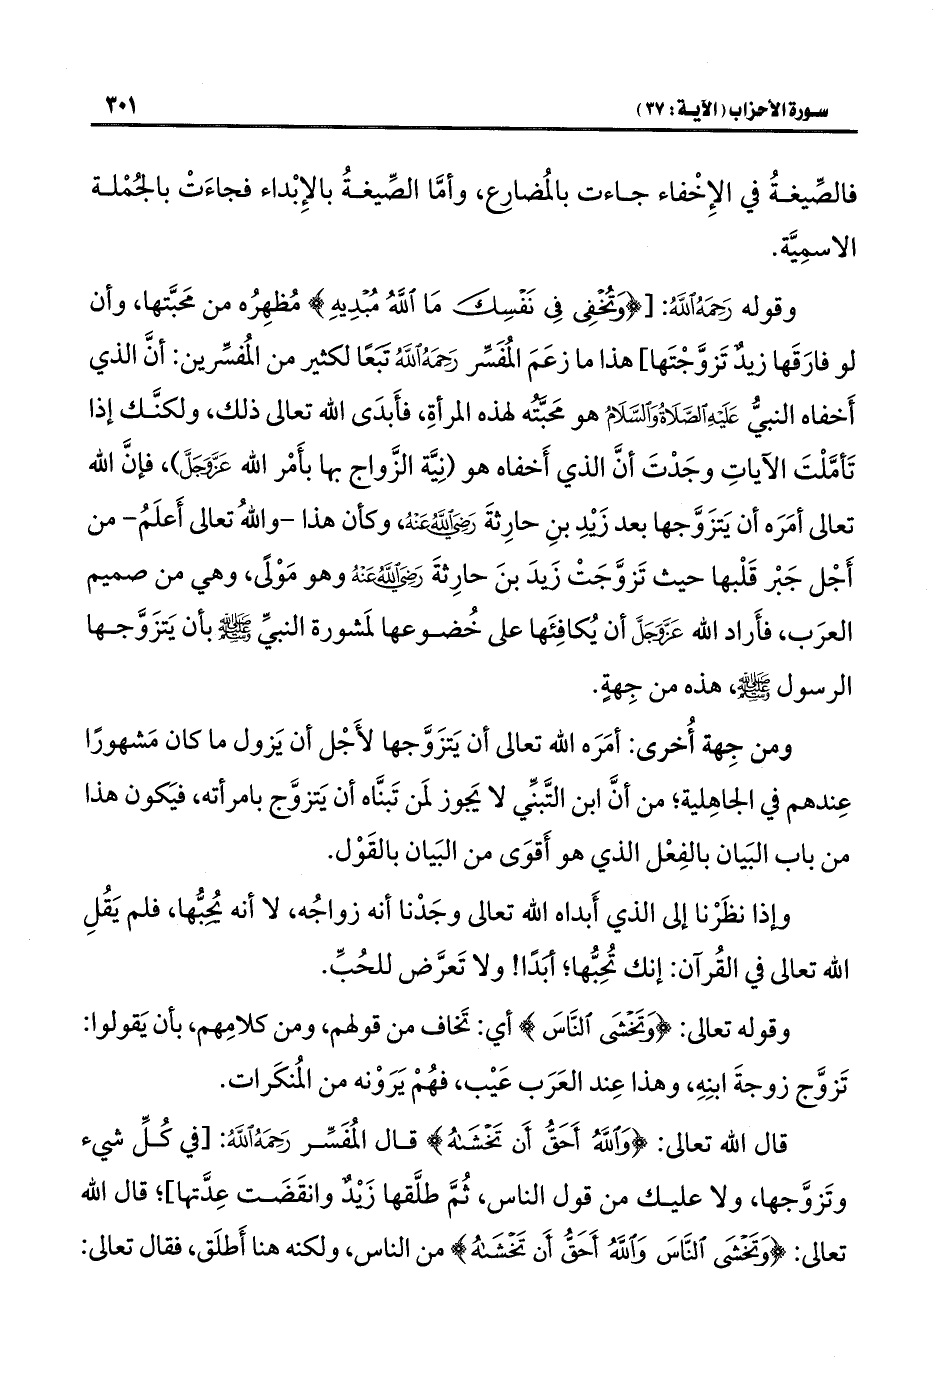 سورة الأحزاب (الآية: ٣٧) ٣٠١
فالصِّيغةُ في الإِخْفاء جاءت بالمُضارِع، وأمَّا الصِّيغةُ بالإِبْداء فجاءَتْ بالجُمْلة
الاسمِيَّة.
وقوله رَحِمَهُ ٱللَّهُ: [﴿وَتُخْفِى فِى نَفْسِكَ مَا ٱللَّهُ مُبْدِيهِ﴾ مُظهِرُه من مَحَبَّتها، وأن
لو فارَقَها زيدٌ تزوَّجْتَها] هذا ما زعَمَ المُفَسِّر رَحِمَهُ ٱللَّهُ تبَعًا لكثير من المُفسِّرين: أنَّ الذي
أخفاه النبيُّ عَلَيْهِ ٱلصَّلَاةُ وَٱلسَّلَامُ هو مَحَبَّتُه لهذه المرأةِ، فأَبدَى الله تعالى ذلك، ولكنَّك إذا
تأمَّلْتَ الآياتِ وجَدْتَ أنَّ الذي أَخفاه هو (نِيَّة الزَّواج بها بأَمْر الله عَزَّوَجَلَّ)، فإنَّ الله
تعالى أمَرَه أن يَتزَوَّجها بعد زَيْدِ بنِ حارِثةَ رَضِيَ ٱللَّهُ عَنْهُ، وكأن هذا -واللهُ تعالى أَعلَمُ- من
أَجْل جَبْر قَلْبها حيث تزوَّجَتْ زيدَ بنَ حارِثةَ رَضِيَ ٱللَّهُ عَنْهُ وهو مَوْلًى، وهي من صميم
العرَب، فأَراد الله عَزَّوَجَلَّ أن يُكافِئَها على خُضوعها لمَشورة النبيِّ ﷺ بأن يَتزَوَّجها
الرسول ﷺ، هذه من جِهةٍ.
ومن جِهة أُخرى: أمَرَه الله تعالى أن يَتزَوَّجها لأَجْل أن يَزول ما كان مَشهورًا
عِندهم في الجاهِلية؛ من أنَّ ابن التَّبنِّي لا يَجوز لمَن تَبنَّاه أن يَتزوَّج بامرأته، فيَكون هذا
من باب البَيان بالفِعْل الذي هو أَقوَى من البَيان بالقَوْل.
وإذا نظَرْنا إلى الذي أَبداه الله تعالى وجَدْنا أنه زواجُه، لا أنه يُحِبُّها، فلم يَقُلِ
الله تعالى في القُرآن: إنك تُحِبُّها؛ أبَدًا! ولا تَعرَّض للحُبِّ.
وقوله تعالى: ﴿وَتَخْشَى ٱلنَّاسَ﴾ أي: تَخاف من قولهم، ومن كلامِهم، بأن يَقولوا:
تَزوَّج زوجةَ ابنِهِ، وهذا عِند العَرَب عَيْب، فهُمْ يَرَوْنه من المُنكَرات.
قال الله تعالى: ﴿وَٱللَّهُ أَحَقُّ أَن تَخْشَىٰهُ﴾ قال المُفَسِّر رَحِمَهُ ٱللَّهُ: [في كُلِّ شيء
وتزوَّجها، ولا عليك من قول الناس، ثُمَّ طلَّقها زَيْدٌ وانقَضَت عِدَّتها]؛ قال الله
تعالى: ﴿وَتَخْشَى ٱلنَّاسَ وَٱللَّهُ أَحَقُّ أَن تَخْشَىٰهُ﴾ من الناس، ولكنه هنا أَطلَق، فقال تعالى: